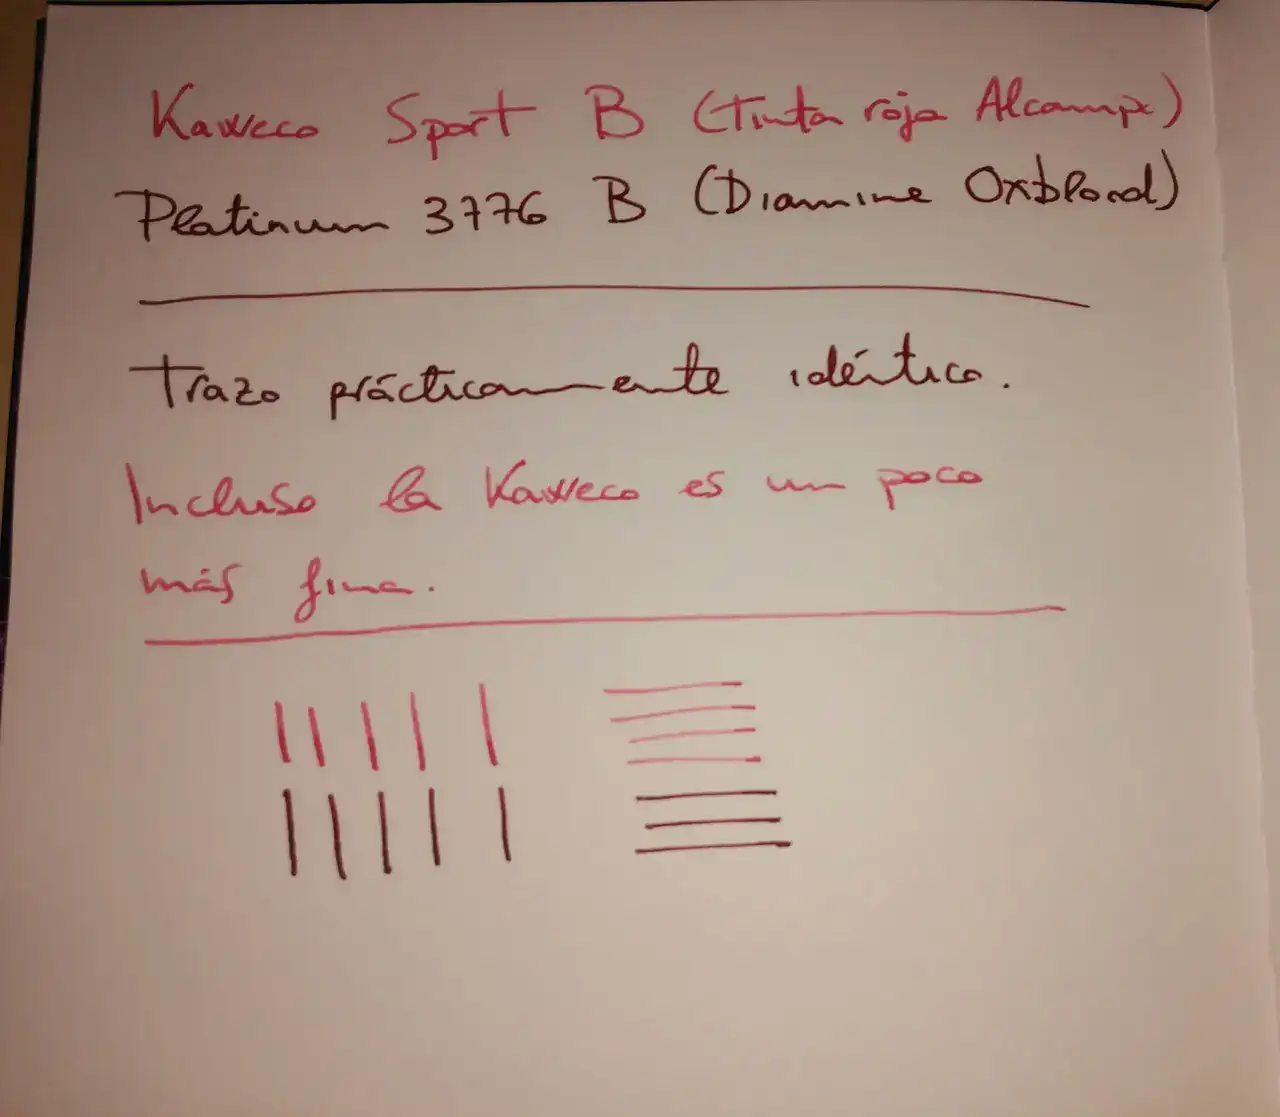 Kaweco Sport B (Tinta roja Alcampo)
Platinum 3776 B (Diamine Oxblood)
Trazo prácticamente idéntico.
Incluso la Kaweco es un poco
más fina.